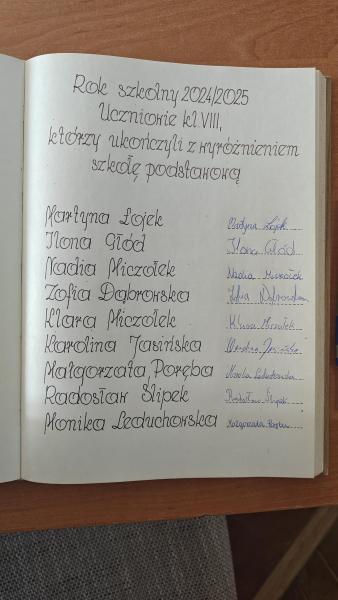 Rok szkolny 2024/2025
Uczniowie kl. VIII,
którzy ukończyli z wyróżnieniem
szkołę podstawową
Martyna Łojek Martyna Łojek
Ilona Głód Ilona Głód
Nadia Miczołek Nadia Miczołek
Zofia Dąbrowska Zofia Dąbrowska
Klara Miczołek Klara Miczołek
Karolina Jasińska Karolina Jasińska
Małgorzata Poręba Monika Leduchowska
Radosław Ślipek Radosław Ślipek
Monika Leduchowska Małgorzata Poręba